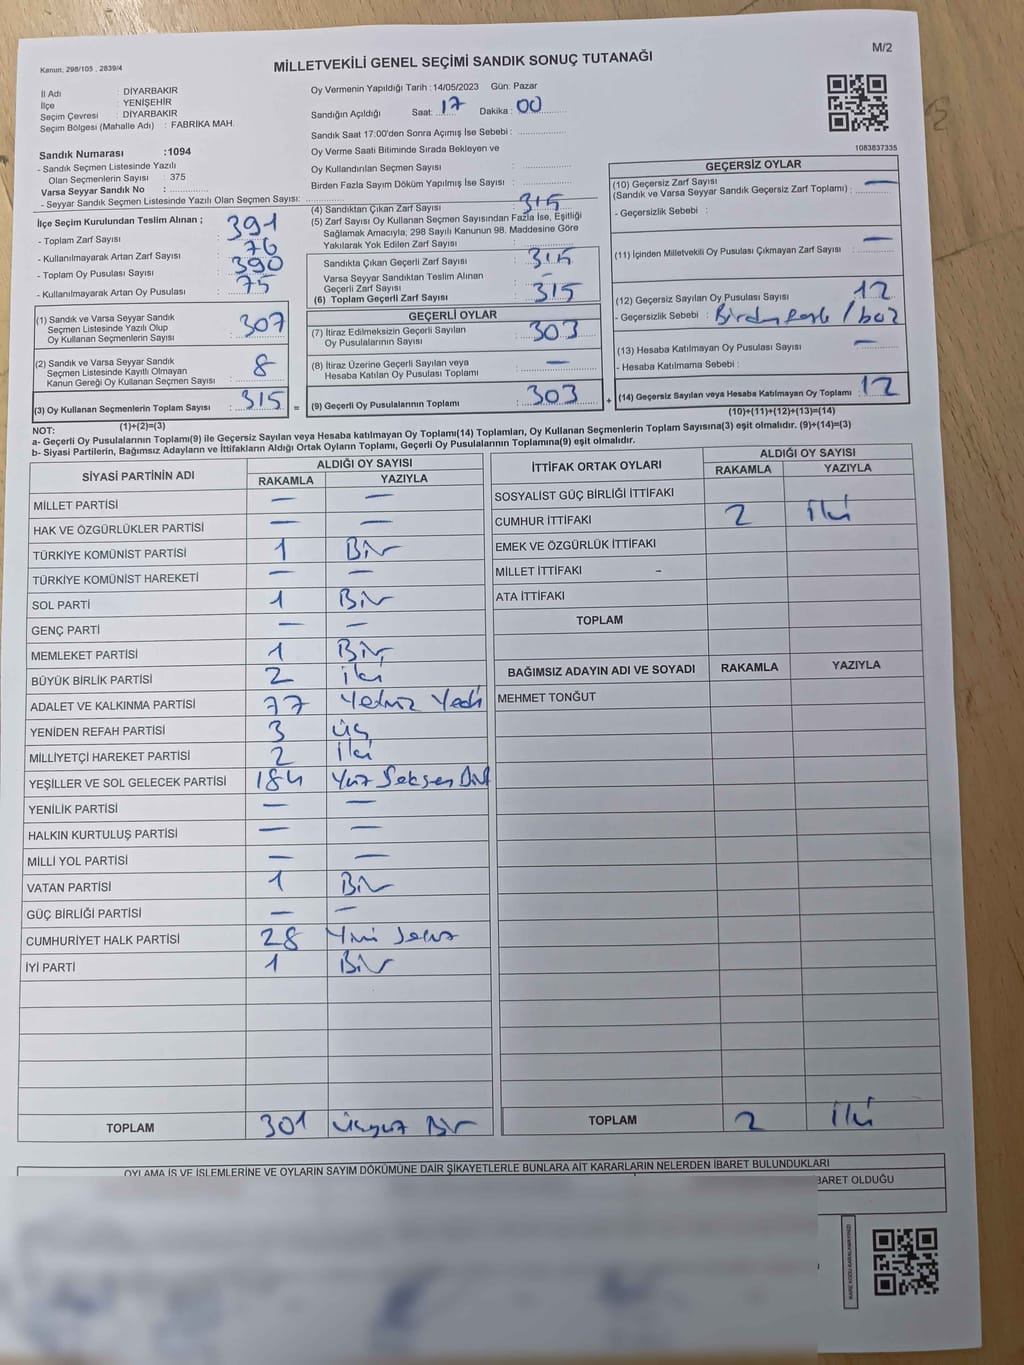 M/2
Kanun. 298/105 , 2839/4
MİLLETVEKİLİ GENEL SEÇİMİ SANDIK SONUÇ TUTANAĞI
İl Adı : DİYARBAKIR
İlçe : YENİŞEHİR
Seçim Çevresi : DİYARBAKIR
Seçim Bölgesi (Mahalle Adı) : FABRİKA MAH.
Oy Vermenin Yapıldığı Tarih :14/05/2023 Gün: Pazar
Sandığın Açıldığı Saat: 17 Dakika : 00
Sandık Saat 17:00'den Sonra Açımış İse Sebebi :
Oy Verme Saati Bitiminde Sırada Bekleyen ve
Oy Kullandırılan Seçmen Sayısı :
Birden Fazla Sayım Döküm Yapılmış İse Sayısı :
1083837335
Sandık Numarası :1094
- Sandık Seçmen Listesinde Yazılı
Olan Seçmenlerin Sayısı : 375
Varsa Seyyar Sandık No :
- Seyyar Sandık Seçmen Listesinde Yazılı Olan Seçmen Sayısı:
İlçe Seçim Kurulundan Teslim Alınan ;
- Toplam Zarf Sayısı : 391
- Kullanılmayarak Artan Zarf Sayısı : 76
- Toplam Oy Pusulası Sayısı : 390
- Kullanılmayarak Artan Oy Pusulası : 75
(1) Sandık ve Varsa Seyyar Sandık
Seçmen Listesinde Yazılı Olup
Oy Kullanan Seçmenlerin Sayısı : 307
(2) Sandık ve Varsa Seyyar Sandık
Seçmen Listesinde Kayıtlı Olmayan
Kanun Gereği Oy Kullanan Seçmen Sayısı : 8
(3) Oy Kullanan Seçmenlerin Toplam Sayısı : 315
(1)+(2)=(3)
(4) Sandıktan Çıkan Zarf Sayısı : 315
(5) Zarf Sayısı Oy Kullanan Seçmen Sayısından Fazla İse, Eşitliği
Sağlamak Amacıyla, 298 Sayılı Kanunun 98. Maddesine Göre
Yakılarak Yok Edilen Zarf Sayısı :
Sandıkta Çıkan Geçerli Zarf Sayısı : 315
Varsa Seyyar Sandıktan Teslim Alınan
Geçerli Zarf Sayısı : –
(6) Toplam Geçerli Zarf Sayısı : 315
GEÇERLİ OYLAR
(7) İtiraz Edilmeksizin Geçerli Sayılan
Oy Pusulalarının Sayısı : 303
(8) İtiraz Üzerine Geçerli Sayılan veya
Hesaba Katılan Oy Pusulası Toplamı : —
= (9) Geçerli Oy Pusulalarının Toplamı : 303 +
GEÇERSİZ OYLAR
(10) Geçersiz Zarf Sayısı
(Sandık ve Varsa Seyyar Sandık Geçersiz Zarf Toplamı) : —
- Geçersizlik Sebebi :
(11) İçinden Milletvekili Oy Pusulası Çıkmayan Zarf Sayısı : —
(12) Geçersiz Sayılan Oy Pusulası Sayısı : 12
- Geçersizlik Sebebi :
(13) Hesaba Katılmayan Oy Pusulası Sayısı : —
- Hesaba Katılmama Sebebi :
(14) Geçersiz Sayılan veya Hesaba Katılmayan Oy Toplamı : 12
(10)+(11)+(12)+(13)=(14)
NOT:
a- Geçerli Oy Pusulalarının Toplamı(9) ile Geçersiz Sayılan veya Hesaba katılmayan Oy Toplamı(14) Toplamları, Oy Kullanan Seçmenlerin Toplam Sayısına(3) eşit olmalıdır. (9)+(14)=(3)
b- Siyasi Partilerin, Bağımsız Adayların ve İttifakların Aldığı Ortak Oyların Toplamı, Geçerli Oy Pusulalarının Toplamına(9) eşit olmalıdır.
SİYASİ PARTİNİN ADI ALDIĞI OY SAYISI
RAKAMLA YAZIYLA
MİLLET PARTİSİ — —
HAK VE ÖZGÜRLÜKLER PARTİSİ — —
TÜRKİYE KOMÜNİST PARTİSİ 1 Bir
TÜRKİYE KOMÜNİST HAREKETİ — —
SOL PARTİ 1 Bir
GENÇ PARTİ — —
MEMLEKET PARTİSİ 1 Bir
BÜYÜK BİRLİK PARTİSİ 2 iki
ADALET VE KALKINMA PARTİSİ 77 Yetmiz Yedi
YENİDEN REFAH PARTİSİ 3 üç
MİLLİYETÇİ HAREKET PARTİSİ 2 İki
YEŞİLLER VE SOL GELECEK PARTİSİ 184 Yüz Seksen Dört
YENİLİK PARTİSİ — —
HALKIN KURTULUŞ PARTİSİ — —
MİLLİ YOL PARTİSİ — —
VATAN PARTİSİ 1 Bir
GÜÇ BİRLİĞİ PARTİSİ — —
CUMHURİYET HALK PARTİSİ 28 Yirmi Sekiz
İYİ PARTİ 1 Bir
TOPLAM 301 Üçyüz Bir
İTTİFAK ORTAK OYLARI ALDIĞI OY SAYISI
RAKAMLA YAZIYLA
SOSYALİST GÜÇ BİRLİĞİ İTTİFAKI
CUMHUR İTTİFAKI 2 İki
EMEK VE ÖZGÜRLÜK İTTİFAKI
MİLLET İTTİFAKI –
ATA İTTİFAKI
TOPLAM
BAĞIMSIZ ADAYIN ADI VE SOYADI RAKAMLA YAZIYLA
MEHMET TONĞUT
TOPLAM 2 İki
OYLAMA İŞ VE İŞLEMLERİNE VE OYLARIN SAYIM DÖKÜMÜNE DAİR ŞİKAYETLERLE BUNLARA AİT KARARLARIN NELERDEN İBARET BULUNDUKLARI
BARET OLDUĞU